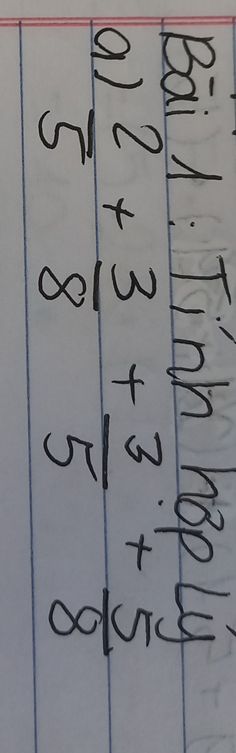 Bài 1: Tính hợp lý
a) 2/5 + 3/8 + 3/5 + 5/8